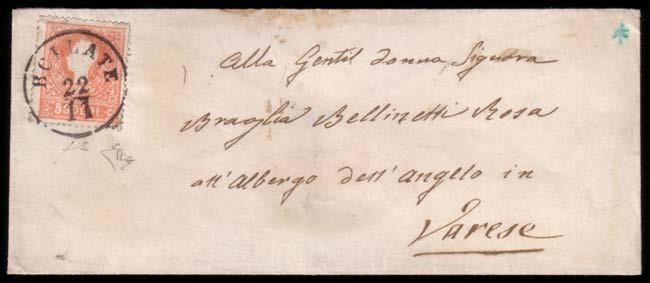 BOLLATE
22
11
5 SOLDI
Alla Gentil donna Signora
Braglia Bellinetti Rosa
all'Albergo dell'Angelo in
Varese